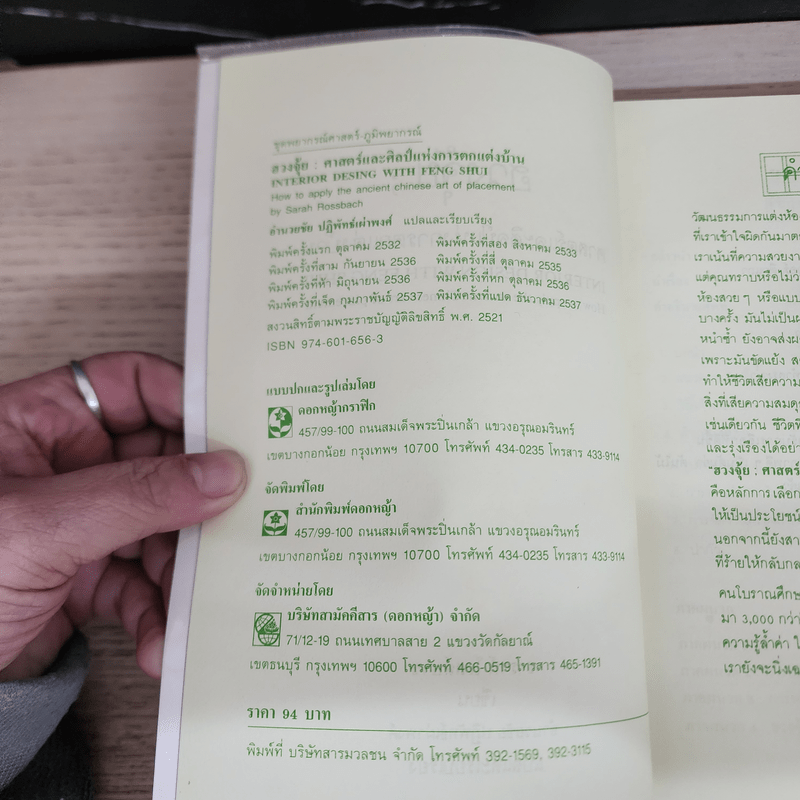 ชุดพยากรณ์ศาสตร์-ภูมิพยากรณ์
ฮวงจุ้ย : ศาสตร์และศิลป์แห่งการตกแต่งบ้าน
INTERIOR DESING WITH FENG SHUI
How to apply the ancient chinese art of placement
by Sarah Rossbach
อำนวยชัย ปฏิพัทธ์เผ่าพงศ์ แปลและเรียบเรียง
พิมพ์ครั้งแรก ตุลาคม 2532 พิมพ์ครั้งที่สอง สิงหาคม 2533
พิมพ์ครั้งที่สาม กันยายน 2536 พิมพ์ครั้งที่สี่ ตุลาคม 2535
พิมพ์ครั้งที่ห้า มิถุนายน 2536 พิมพ์ครั้งที่หก ตุลาคม 2536
พิมพ์ครั้งที่เจ็ด กุมภาพันธ์ 2537 พิมพ์ครั้งที่แปด ธันวาคม 2537
สงวนสิทธิ์ตามพระราชบัญญัติลิขสิทธิ์ พ.ศ. 2521
ISBN 974-601-656-3
แบบปกและรูปเล่มโดย
ดอกหญ้ากราฟิก
457/99-100 ถนนสมเด็จพระปิ่นเกล้า แขวงอรุณอมรินทร์
เขตบางกอกน้อย กรุงเทพฯ 10700 โทรศัพท์ 434-0235 โทรสาร 433-9114
จัดพิมพ์โดย
สำนักพิมพ์ดอกหญ้า
457/99-100 ถนนสมเด็จพระปิ่นเกล้า แขวงอรุณอมรินทร์
เขตบางกอกน้อย กรุงเทพฯ 10700 โทรศัพท์ 434-0235 โทรสาร 433-9114
จัดจำหน่ายโดย
บริษัทสามัคคีสาร (ดอกหญ้า) จำกัด
71/12-19 ถนนเทศบาลสาย 2 แขวงวัดกัลยาณ์
เขตธนบุรี กรุงเทพฯ 10600 โทรศัพท์ 466-0519 โทรสาร 465-1391
ราคา 94 บาท
พิมพ์ที่ บริษัทสารมวลชน จำกัด โทรศัพท์ 392-1569, 392-3115
วัฒนธรรมการแต่งห้อ
ที่เราเข้าใจผิดกันมาตร
เราเน้นที่ความสวยงา
แต่คุณทราบหรือไม่ว่
ห้องสวย ๆ หรือแบบ
บางครั้ง มันไม่เป็น
หนำซ้ำ ยังอาจส่งผ
เพราะมันขัดแย้ง ส
ทำให้ชีวิตเสียความ
สิ่งที่เสียความสมดุ
เช่นเดียวกัน ชีวิตที่
และรุ่งเรืองได้อย่า
"ฮวงจุ้ย : ศาสตร์
คือหลักการ เลือก
ให้เป็นประโยชน์
นอกจากนี้ยังสา
ที่ร้ายให้กลับกล
คนโบราณศึกษ
มา 3,000 กว่า
ความรู้ล้ำค่า ใ
เรายังจะนิ่งเฉ